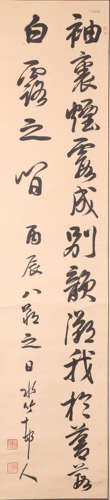 袖裏煙霞成別韻溯我於葭
白露之間 丙辰八之日水竹邨人